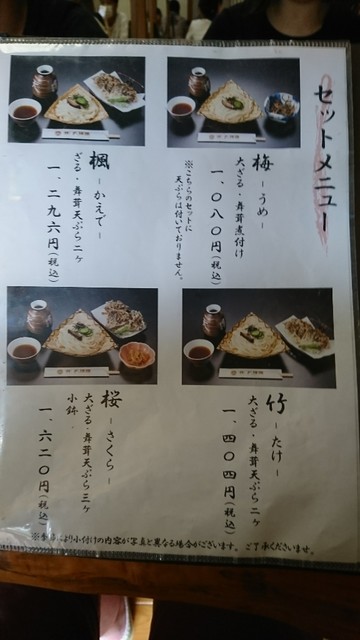 セットメニュー
梅 －うめ－
大ざる・舞茸煮付け
一、〇八〇円(税込)
※こちらのセットに
天ぷらは付いておりません。
楓 －かえで－
ざる・舞茸天ぷら二ヶ
一、二九六円(税込)
竹 －たけ－
大ざる・舞茸天ぷら二ヶ
一、四〇四円(税込)
桜 －さくら－
大ざる・舞茸天ぷら三ヶ
小鉢
一、六二〇円(税込)
より小付けの内容が写真と異なる場合がございます。ご了承くださいませ。